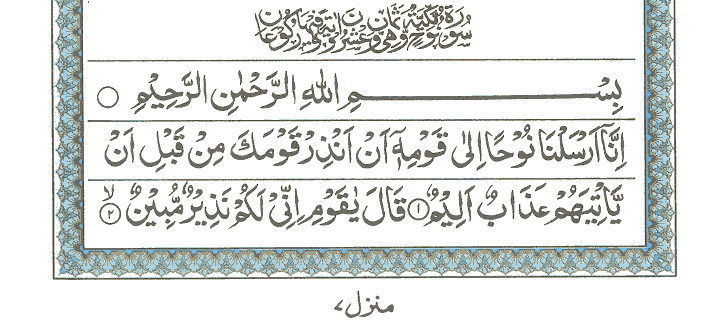 سُورَةُ نُوْحٍ مَّكِّيَّةٌ وَّهِيَ ثَمَانٍ وَّعِشْرُوْنَ اٰيَةً وَّفِيْهَا رُكُوْعَانِ
بِسْمِ اللّٰهِ الرَّحْمٰنِ الرَّحِيْمِ ○
اِنَّاۤ اَرْسَلْنَا نُوْحًا اِلٰى قَوْمِهٖۤ اَنْ اَنْذِرْ قَوْمَكَ مِنْ قَبْلِ اَنْ
يَّاْتِيَهُمْ عَذَابٌ اَلِيْمٌ ۝۱ قَالَ يٰقَوْمِ اِنِّيْ لَكُمْ نَذِيْرٌ مُّبِيْنٌ ۝۲ۙ
منزل ۷